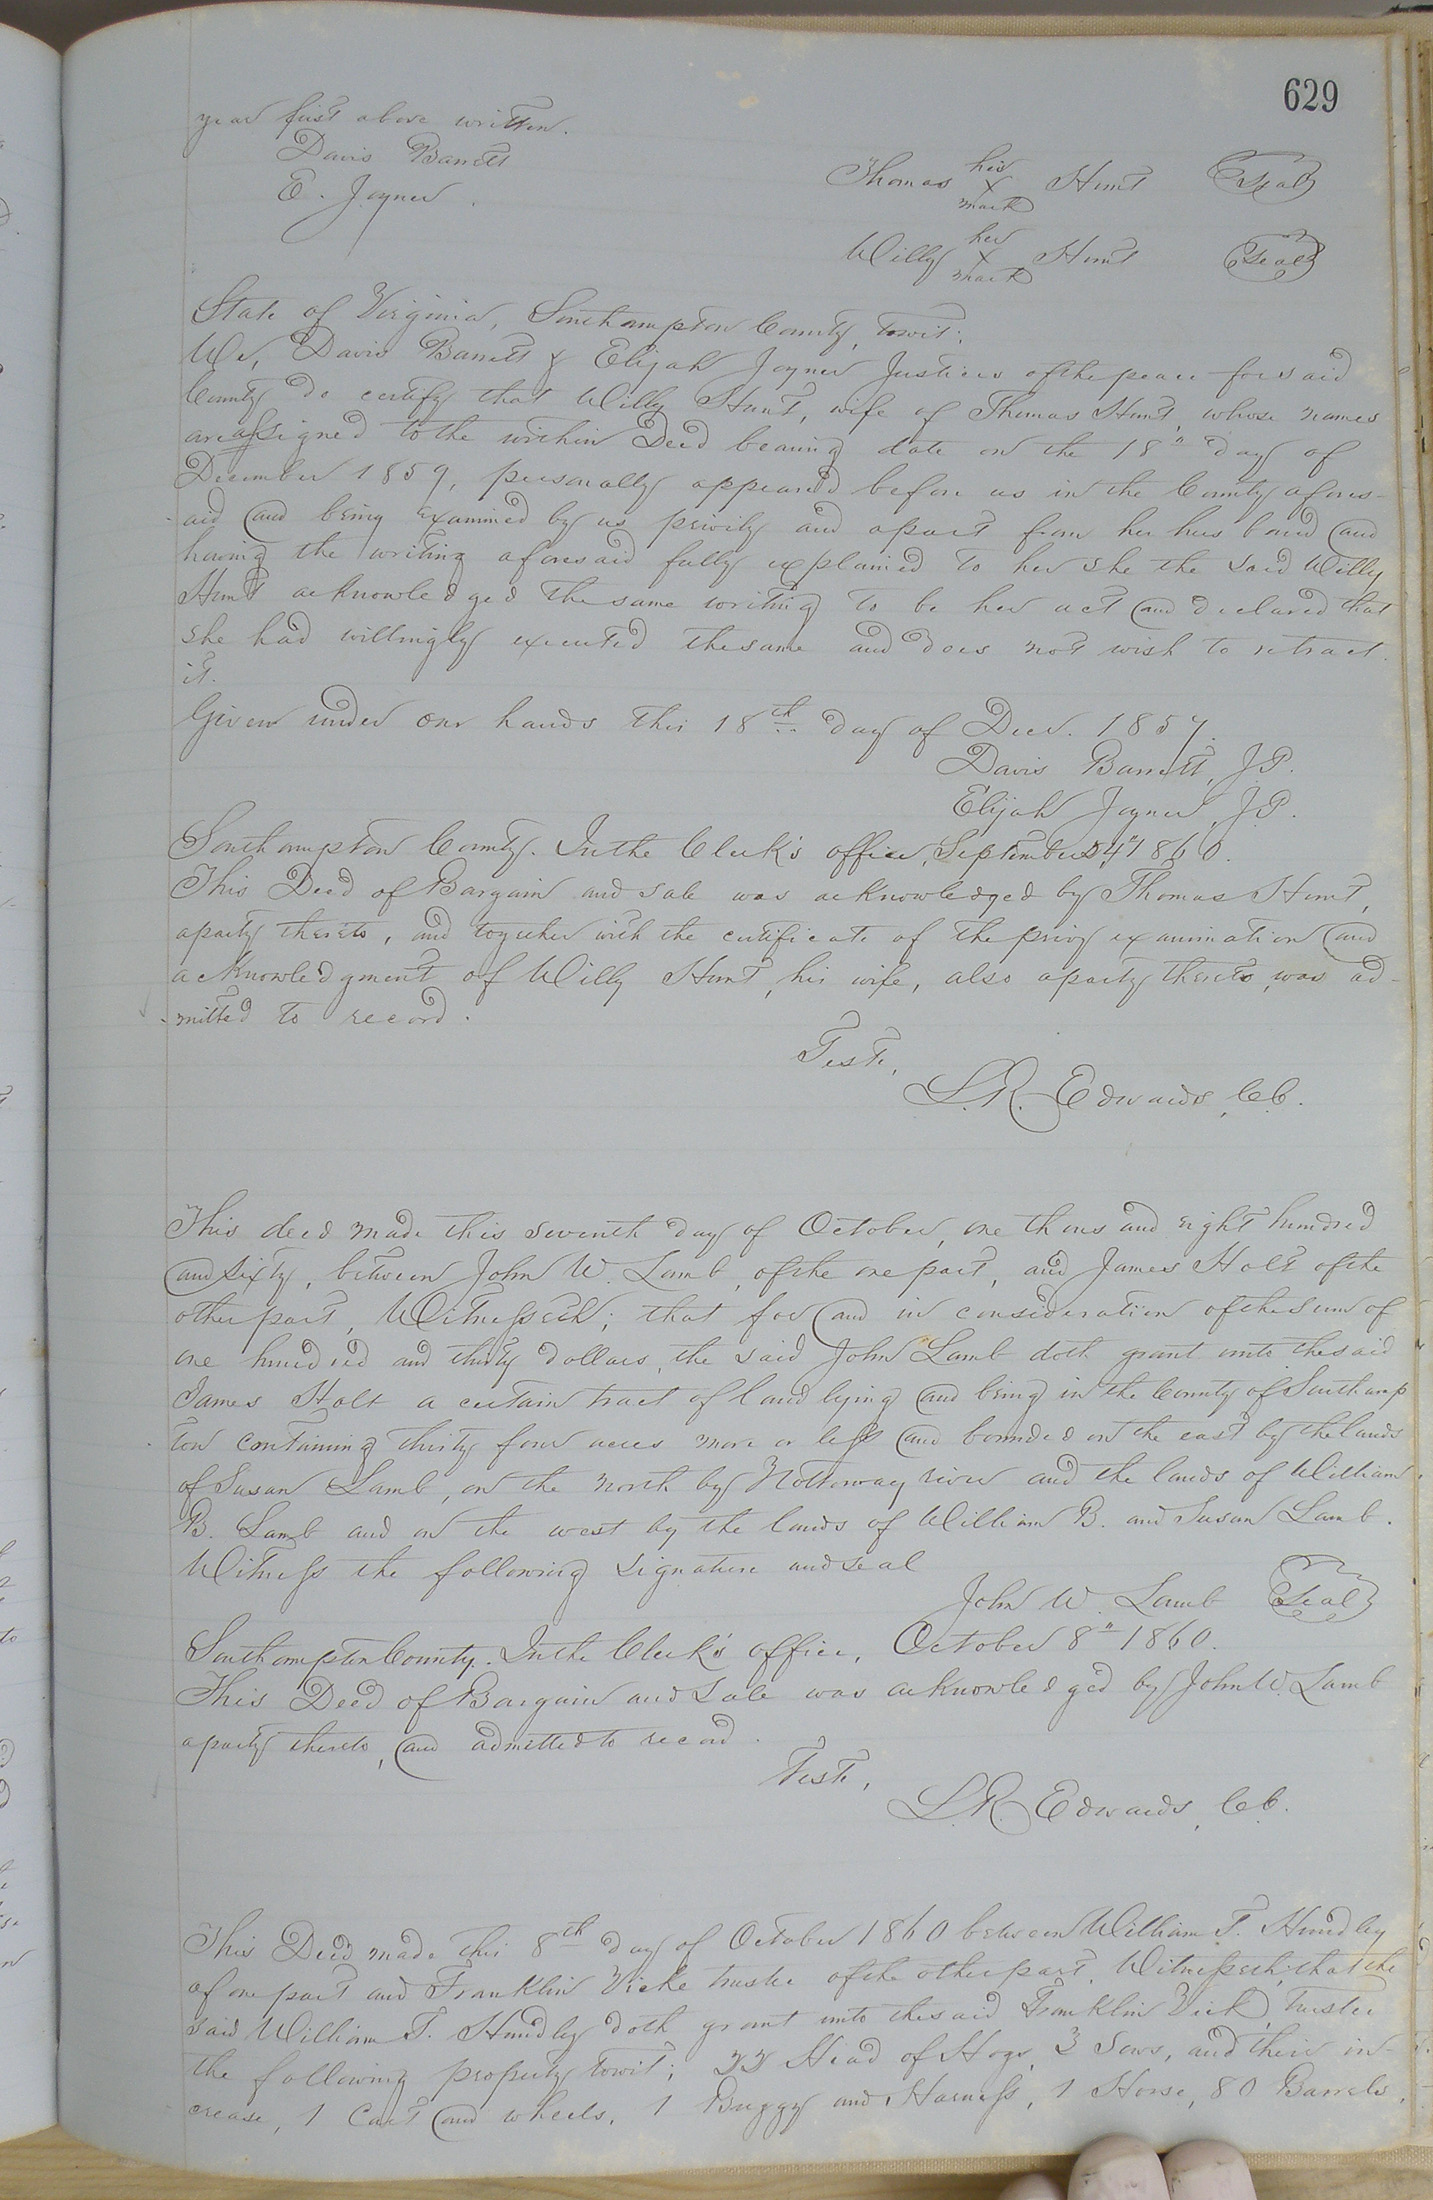 629
year first above written.
Davis Barrett
E. Joyner.
Thomas his X mark Hunt Seal
Willy her X mark Hunt Seal
State of Virginia, Southampton County, towit:
We, Davis Barrett & Elijah Joyner Justices of the peace for said
County do certify that Willy Hunt, wife of Thomas Hunt, whose names
are assigned to the within Deed bearing date on the 18" day of
December 1859, personally appeared before us in the County afores-
aid and being examined by us privily and apart from her husband and
having the writing aforesaid fully explained to her she the said Willy
Hunt acknowledged the same writing to be her act and declared that
she had willingly executed the same and does not wish to retract
it.
Given under our hands this 18th day of Decr. 1859.
Davis Barrett, J.P.
Elijah Joyner, J.P.
Southampton County. In the Clerk's office, September 1860.
This Deed of Bargain and sale was acknowledged by Thomas Hunt,
a party thereto, and together with the certificate of the privy examination and
acknowledgment of Willy Hunt, his wife, also a party thereto, was ad-
mitted to record.
Teste,
L.R. Edwards, C.C.
This deed made this seventh day of October, one thousand eight hundred
and sixty, between John W. Lamb, of the one part, and James Holt of the
other part, Witnesseth; that for and in consideration of the sum of
one hundred and thirty dollars, the said John Lamb doth grant unto the said
James Holt a certain tract of land lying and being in the County of Southamp
ton containing thirty four acres more or less and bounded on the east by the lands
of Susan Lamb, on the north by Nottoway river and the lands of William
B. Lamb and on the west by the lands of William B. and Susan Lamb.
Witness the following signature and seal
John W. Lamb Seal
Southampton County. In the Clerk's office, October 8" 1860.
This Deed of Bargain and Sale was acknowledged by John W. Lamb
a party thereto, and admitted to record.
Teste,
L.R. Edwards, C.C.
This Deed made this 8th day of October 1860 between William T. Hundley
of one part and Franklin Vicke trustee of the other part, Witnesseth; that the
said William T. Hundley doth grant unto the said Franklin Vick, trustee
the following property towit; Head of Hogs, 3 Sows, and their in-
crease, 1 Cart and wheels, 1 Buggy and Harness, 1 Horse, 80 Barrels,